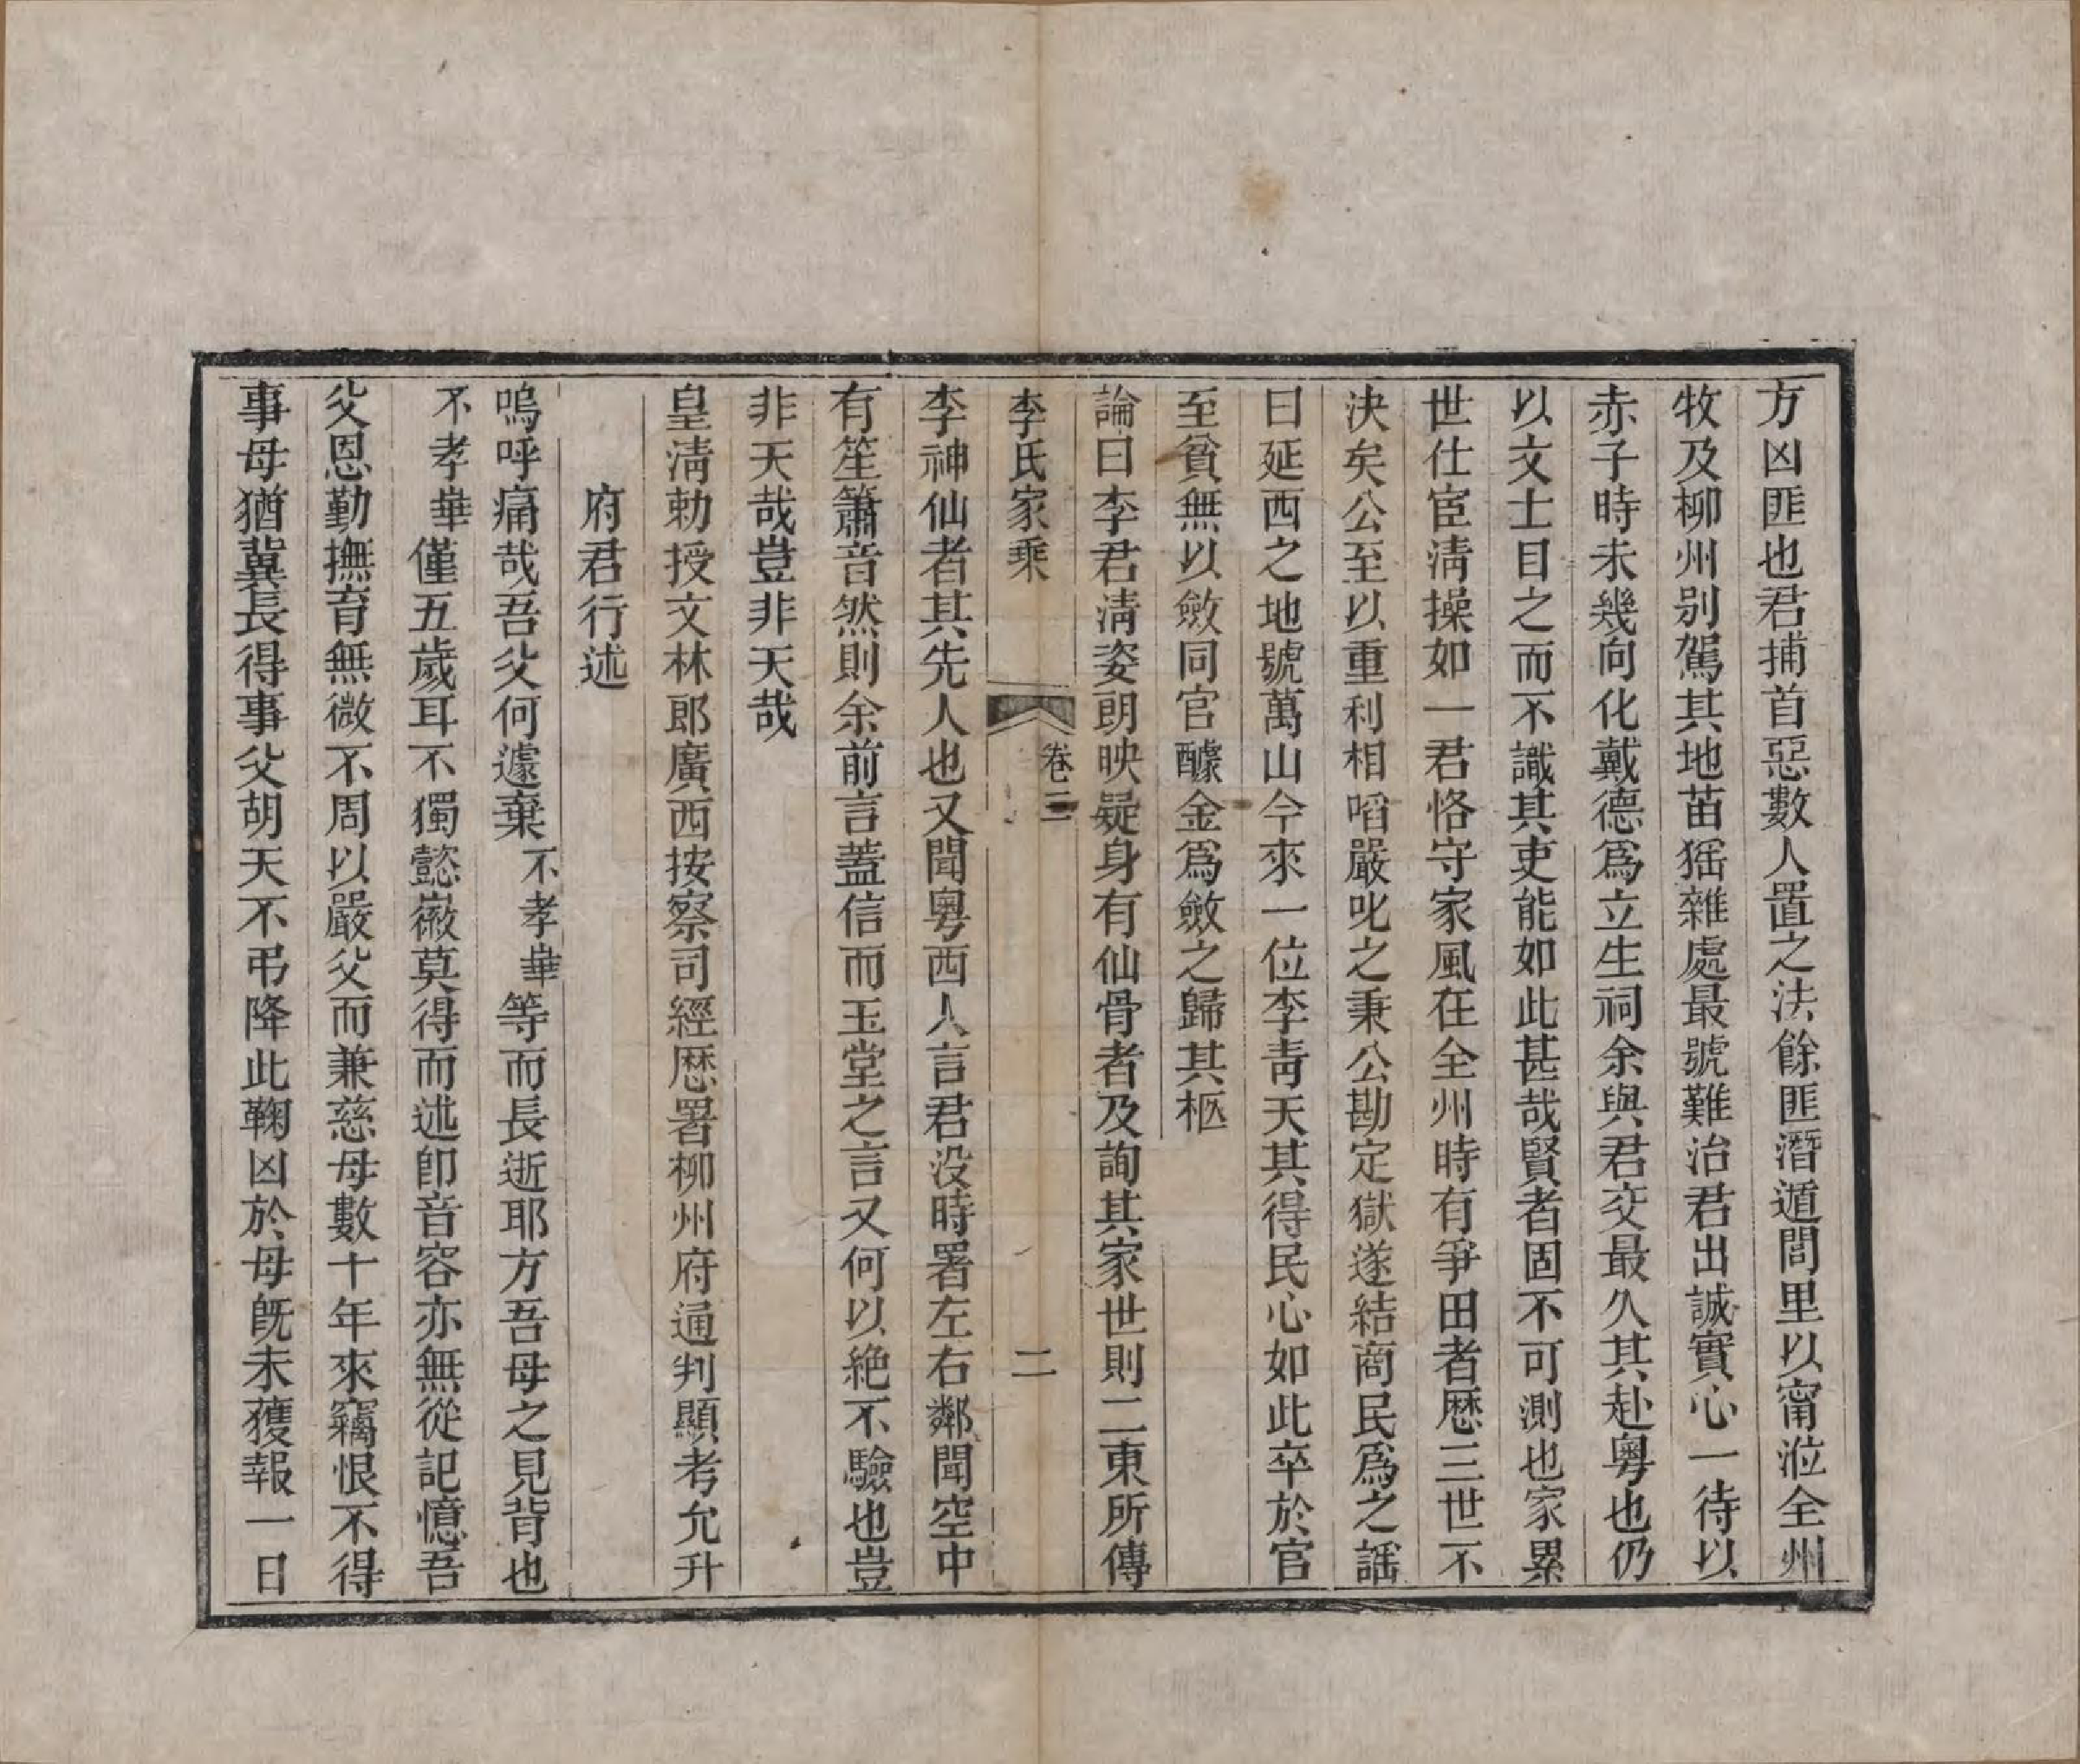 方凶匪也君捕首惡數人置之法餘匪潛遁閭里以甯涖全州
牧及柳州別駕其地苗猺雜處最號難治君出誠實心一待以
赤子時未幾向化戴德爲立生祠余與君交最久其赴粵也仍
以文士目之而不識其吏能如此甚哉賢者固不可測也家累
世仕宦淸操如一君恪守家風在全州時有爭田者歷三世不
決矣公至以重利相啗嚴叱之秉公勘定獄遂結商民爲之謡
曰延西之地號萬山今來一位李靑天其得民心如此卒於官
至貧無以斂同官醵金爲斂之歸其柩
論曰李君淸姿朗映疑身有仙骨者及詢其家世則二東所傳
李氏家乘
卷三
二
李神仙者其先人也又聞粵西人言君没時署左右鄰聞空中
有笙簫音然則余前言蓋信而玉堂之言又何以絶不驗也豈
非天哉豈非天哉
皇淸勅授文林郎廣西按察司經歷署柳州府通判顯考允升
府君行述
嗚呼痛哉吾父何遽棄不孝華等而長逝耶方吾母之見背也
不孝華僅五歲耳不獨懿徽莫得而述卽音容亦無從記憶吾
父恩勤撫育無微不周以嚴父而兼慈母數十年來竊恨不得
事母猶冀長得事父胡天不弔降此鞠凶於母旣未獲報一日